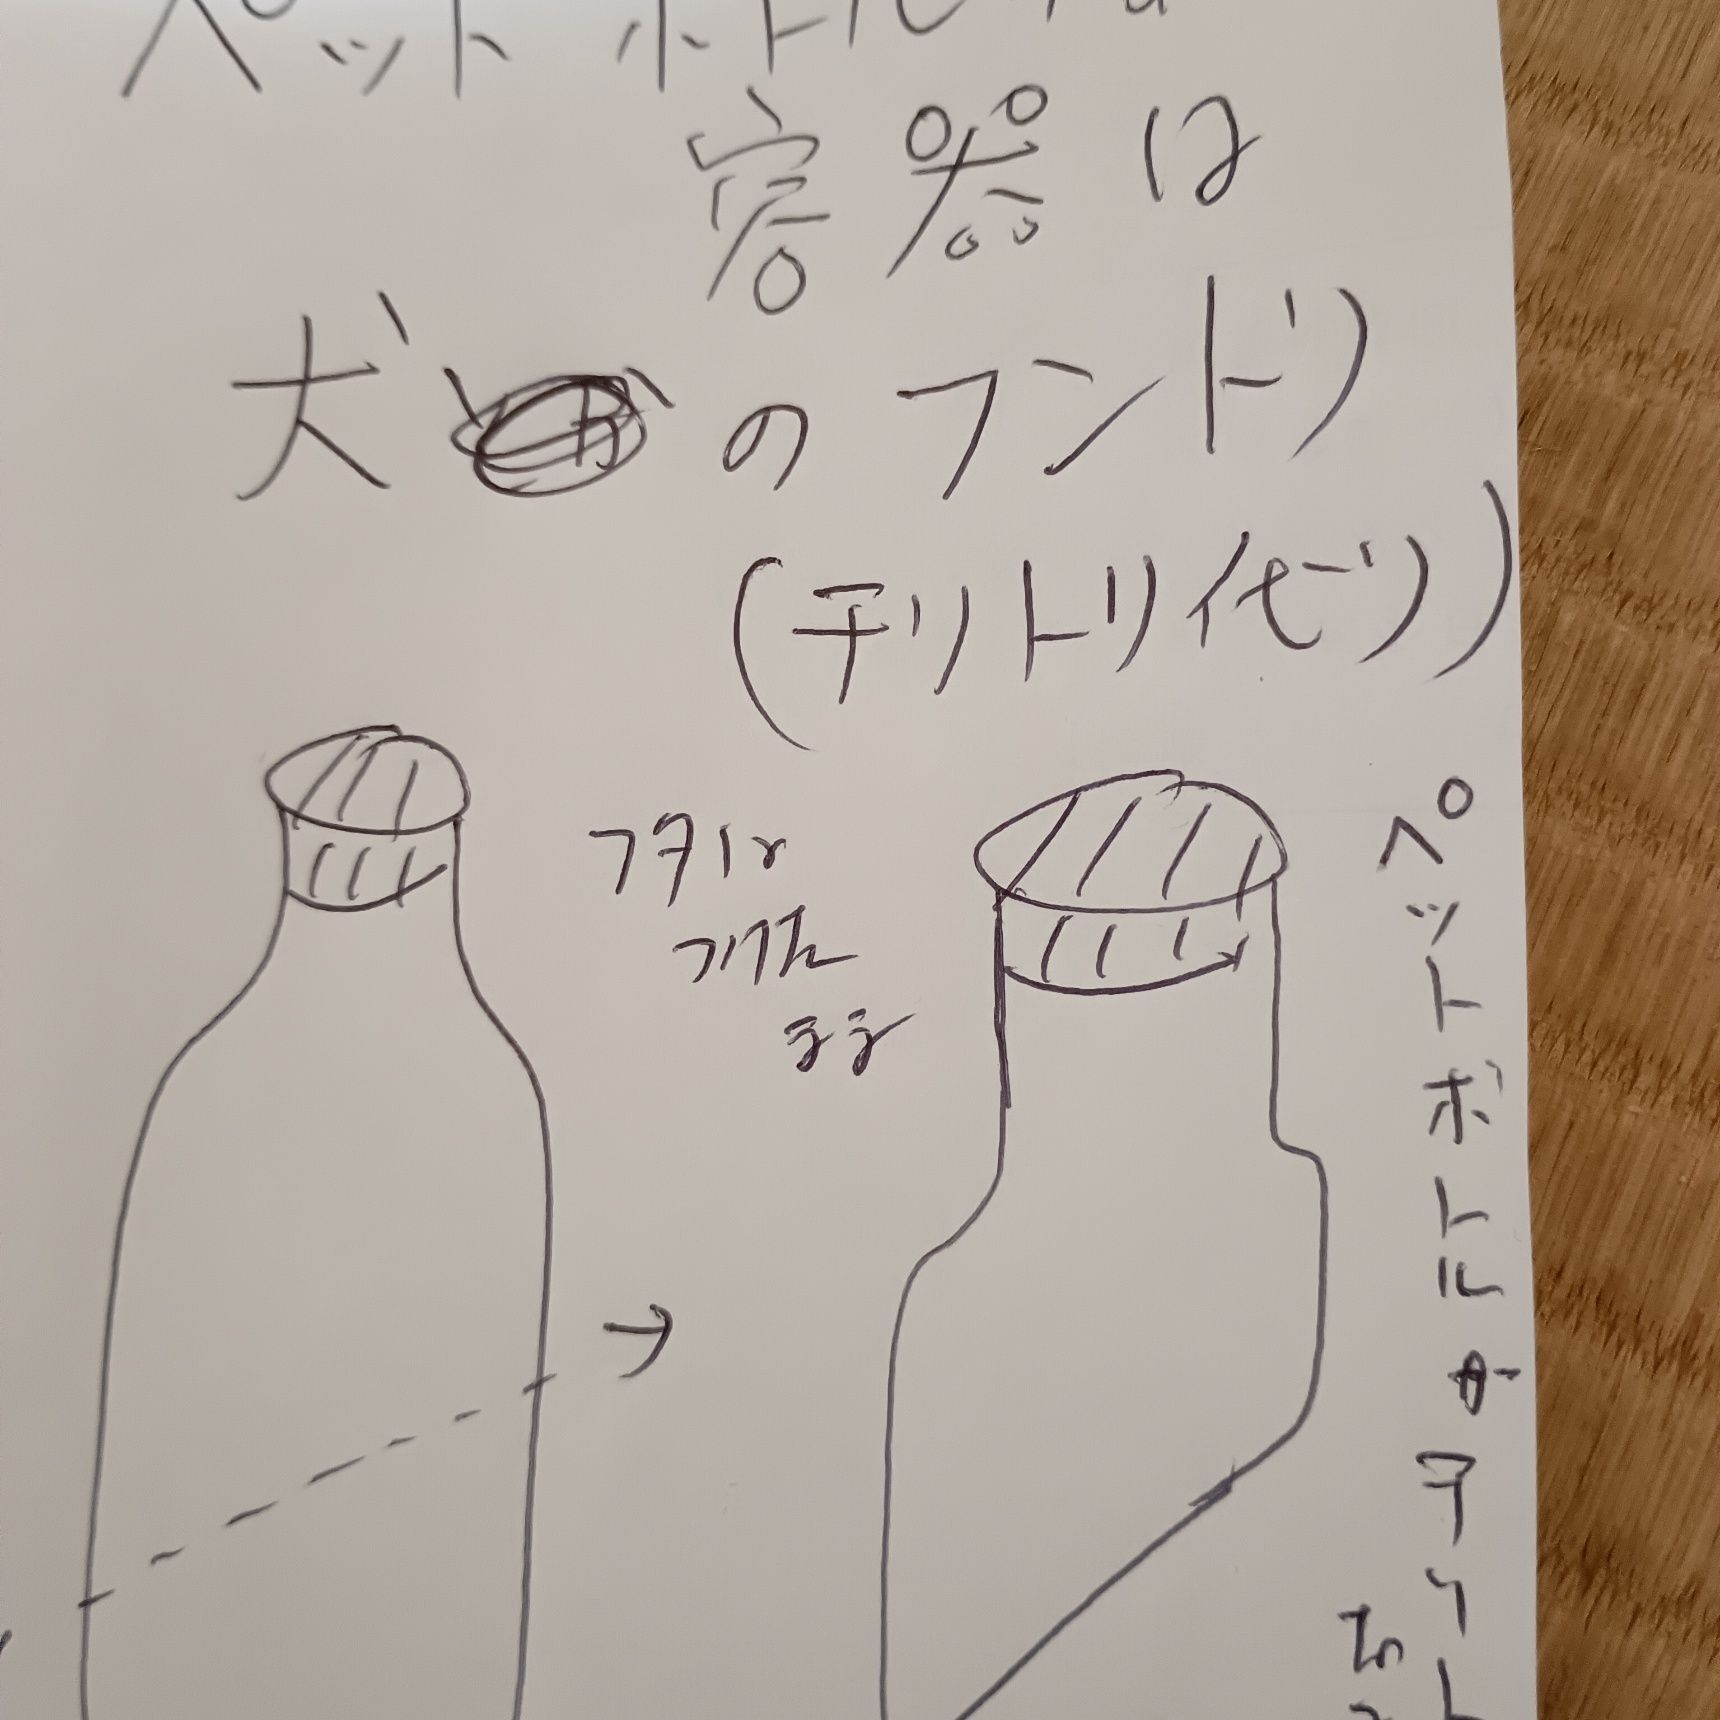 ペットボトル
容器は
犬のフンドリ
(チリトリ代ワリ)
フタは
つけた
まま
ペットボトルが